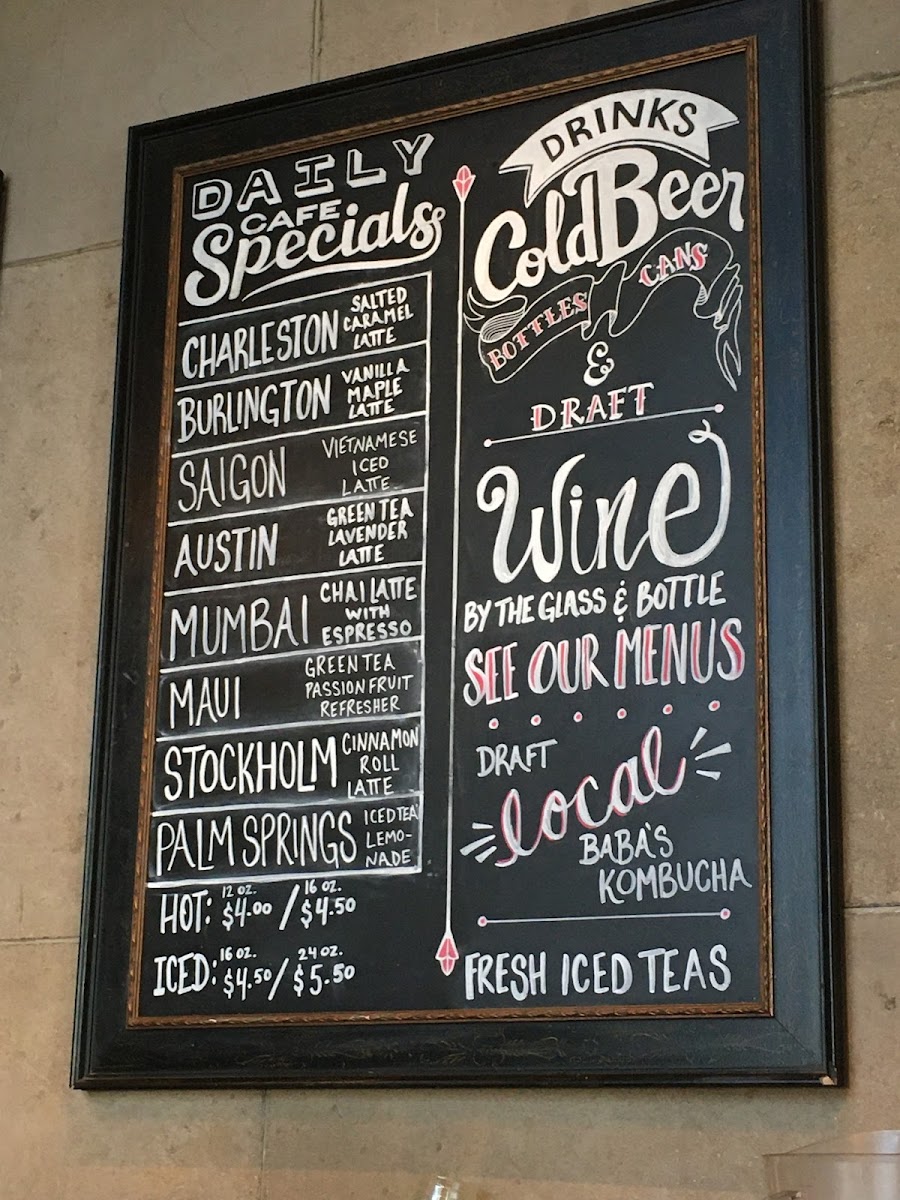 DAILY
CAFE
Specials
CHARLESTON
SALTED
CARAMEL
LATTE
BURLINGTON
VANILLA
MAPLE
LATTE
SAIGON
VIETNAMESE
ICED
LATTE
AUSTIN
GREEN TEA
LAVENDER
LATTE
MUMBAI
CHAI LATTE
WITH
ESPRESSO
MAUI
GREEN TEA
PASSION FRUIT
REFRESHER
STOCKHOLM
CINNAMON
ROLL
LATTE
PALM SPRINGS
ICED TEA
LEMO-
NADE
12 OZ. 16 OZ.
HOT: $4.00 / $4.50
16 OZ. 24 OZ.
ICED: $4.50 / $5.50
DRINKS
Cold Beer
BOTTLES CANS
&
DRAFT
Wine
BY THE GLASS & BOTTLE
SEE OUR MENUS
DRAFT
local
BABA'S
KOMBUCHA
FRESH ICED TEAS